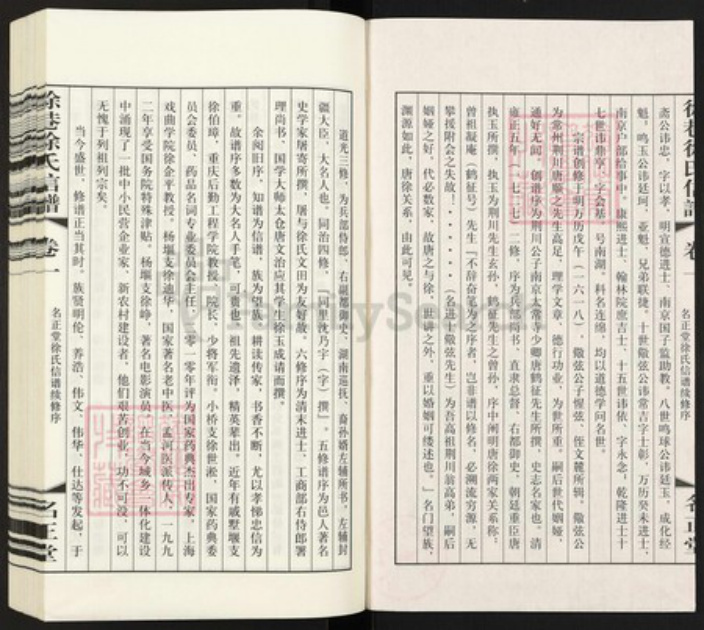 斋公讳忠，字以孝，明宣德进士，南京国子监助教。八世鸣球公讳廷玉，成化经
魁。鸣玉公讳廷珂，亚魁，兄弟联捷。十世儆弦公讳常吉字士彰，万历癸未进士，
南京户部给事中。康熙进士、翰林院庶吉士、十五世讳依，字永念；乾隆进士十
七世讳鼎亨，字会基，号南湖。科名连绵，均以道德学问名世。
宗谱创修于明万历戊午（一六一八），儆弦公子惺弦，侄文麓所辑。儆弦公
为常州荆川唐顺之先生高足，理学文章，德行功业，为世所重。嗣后世代姻娅，
通好无间，创谱序为荆川公子南京太常寺少卿唐鹤征先生所撰，史志名家也。清
雍正五年（一七二七）二修，序为兵部尚书、直隶总督、右都御史、朝廷重臣唐
执玉所撰，执玉为荆川先生玄孙，鹤征先生之曾孙，序中阐明唐徐两家关系称：
曾祖凝庵（鹤征号）先生『不辞奋笔为之序者，岂非谱以修名，必溯流穷源，无
攀援附会之失故！······（名进士儆弦先生）为吾高祖荆川翁高弟，嗣后
姻娅之好，代必数家，故唐之与徐，世讲之外，重以婚姻可缕述也。』名门望族，
渊源如此，唐徐关系，由此可见。
名正堂徐氏信谱续修序
名正堂
道光三修，为兵部侍郎、右副都御史、湖南巡抚、裔孙婿左辅所书，左辅封
疆大臣，大名人也。同治四修，『同里沈乃宇（字）撰』。五修谱序为邑人著名
史学家屠寄所撰，屠与徐氏文田为友好故。六修序为清末进士、工商部右侍郎署
理尚书、国学大师太仓唐文治应其学生徐玉成请而撰。
余阅旧序，知谱为信谱，族为望族，耕读传家，书香不断，尤以孝悌忠信为
重。故谱序多数为大名人手笔，可贵也！祖先遗泽，精英辈出。近年有戚墅堰支
徐伯璋，重庆后勤工程学院教授、院长，少将军衔。小桥支徐世淞，国家药典委
员会委员、药品名词专业委员会主任，二零一零年评为国家药典杰出专家，上海
戏曲学院徐企平教授。杨堰支徐迪华，国家著名老中医、孟河医派传人，一九九
二年享受国务院特殊津贴。杨堰支徐峥，著名电影演员。在当今城乡一体化建设
中涌现了一批中小民营企业家、新农村建设者，他们艰苦创业，功不可没，可以
无愧于列祖列宗矣。
当今盛世，修谱正当其时。族贤明伦、养浩、伟文、伟华、仕达等发起，于
徐巷徐氏信谱
卷一
名正堂徐氏信谱续修序
名正堂
FamilySearch